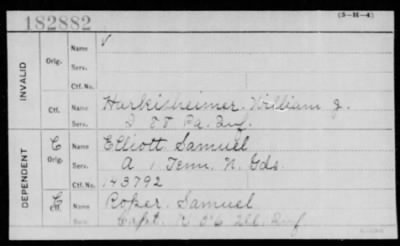 (3-H-4)
182882
INVALID
Orig.
Name √
Serv.
Ctf. No.
Ctf.
Name Harkisheimer, William J.
Serv. I 88 Pa. Inf.
DEPENDENT
C Orig.
Name Elliott, Samuel
Serv. A 1 Tenn. N. Gds
Ctf. No. 143792
C Ctf.
Name Roper, Samuel
Serv. Capt. Ill. Inf